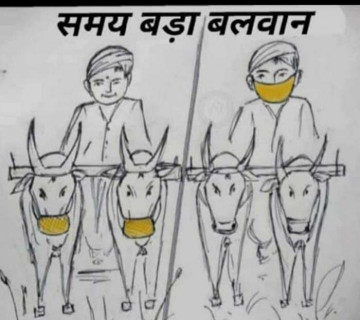 समय बड़ा बलवान